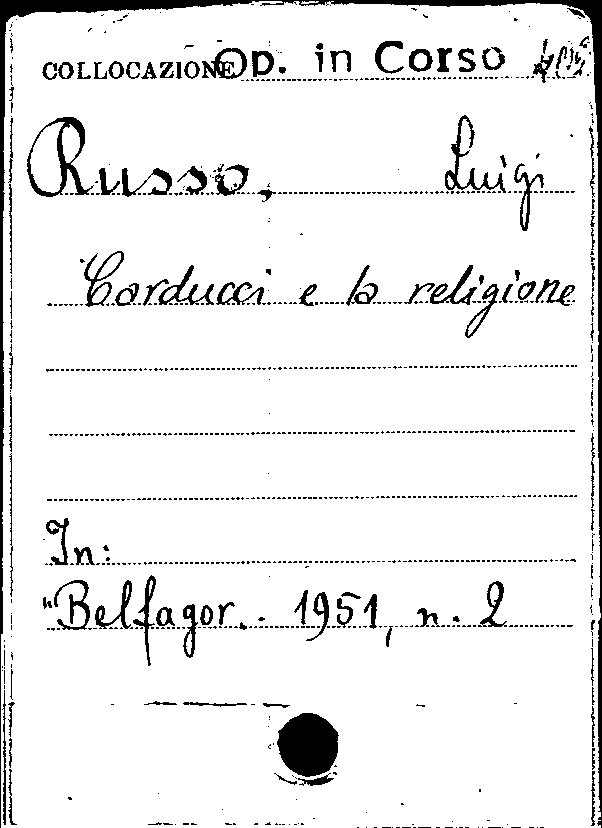 COLLOCAZIONE Op. in Corso
Russo, Luigi
Carducci e la religione
In:
"Belfagor.. 1951, n. 2